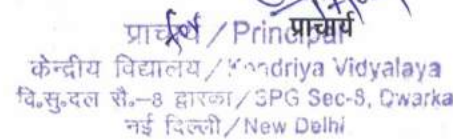 प्राचार्य
प्राचार्य / Principal
केन्द्रीय विद्यालय / Kendriya Vidyalaya
वि.सु.दल सै.-8 द्वारका / SPG Sec-8, Dwarka
नई दिल्ली / New Delhi